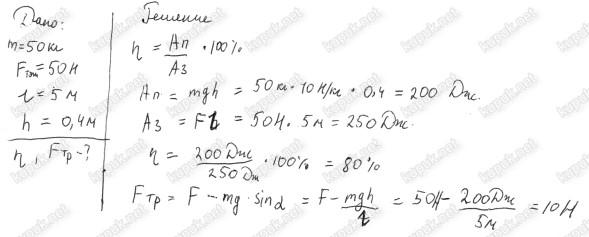 Дано:
m=50кг
Fтяг=50Н
l=5м
h=0,4м
η, Fтр-?
Решение
η = Aп/Aз · 100%
Aп = mgh = 50кг·10Н/кг · 0,4 = 200 Дж.
Aз = Fl = 50Н · 5м = 250 Дж.
η = 200Дж/250Дж · 100% = 80%
Fтр = F - mg · sinα = F - mgh/l = 50Н - 200Дж/5м = 10Н
kupuk.net